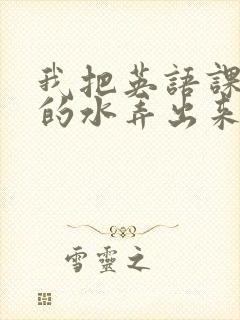 我把英語課
的水弄出來
雪靈之